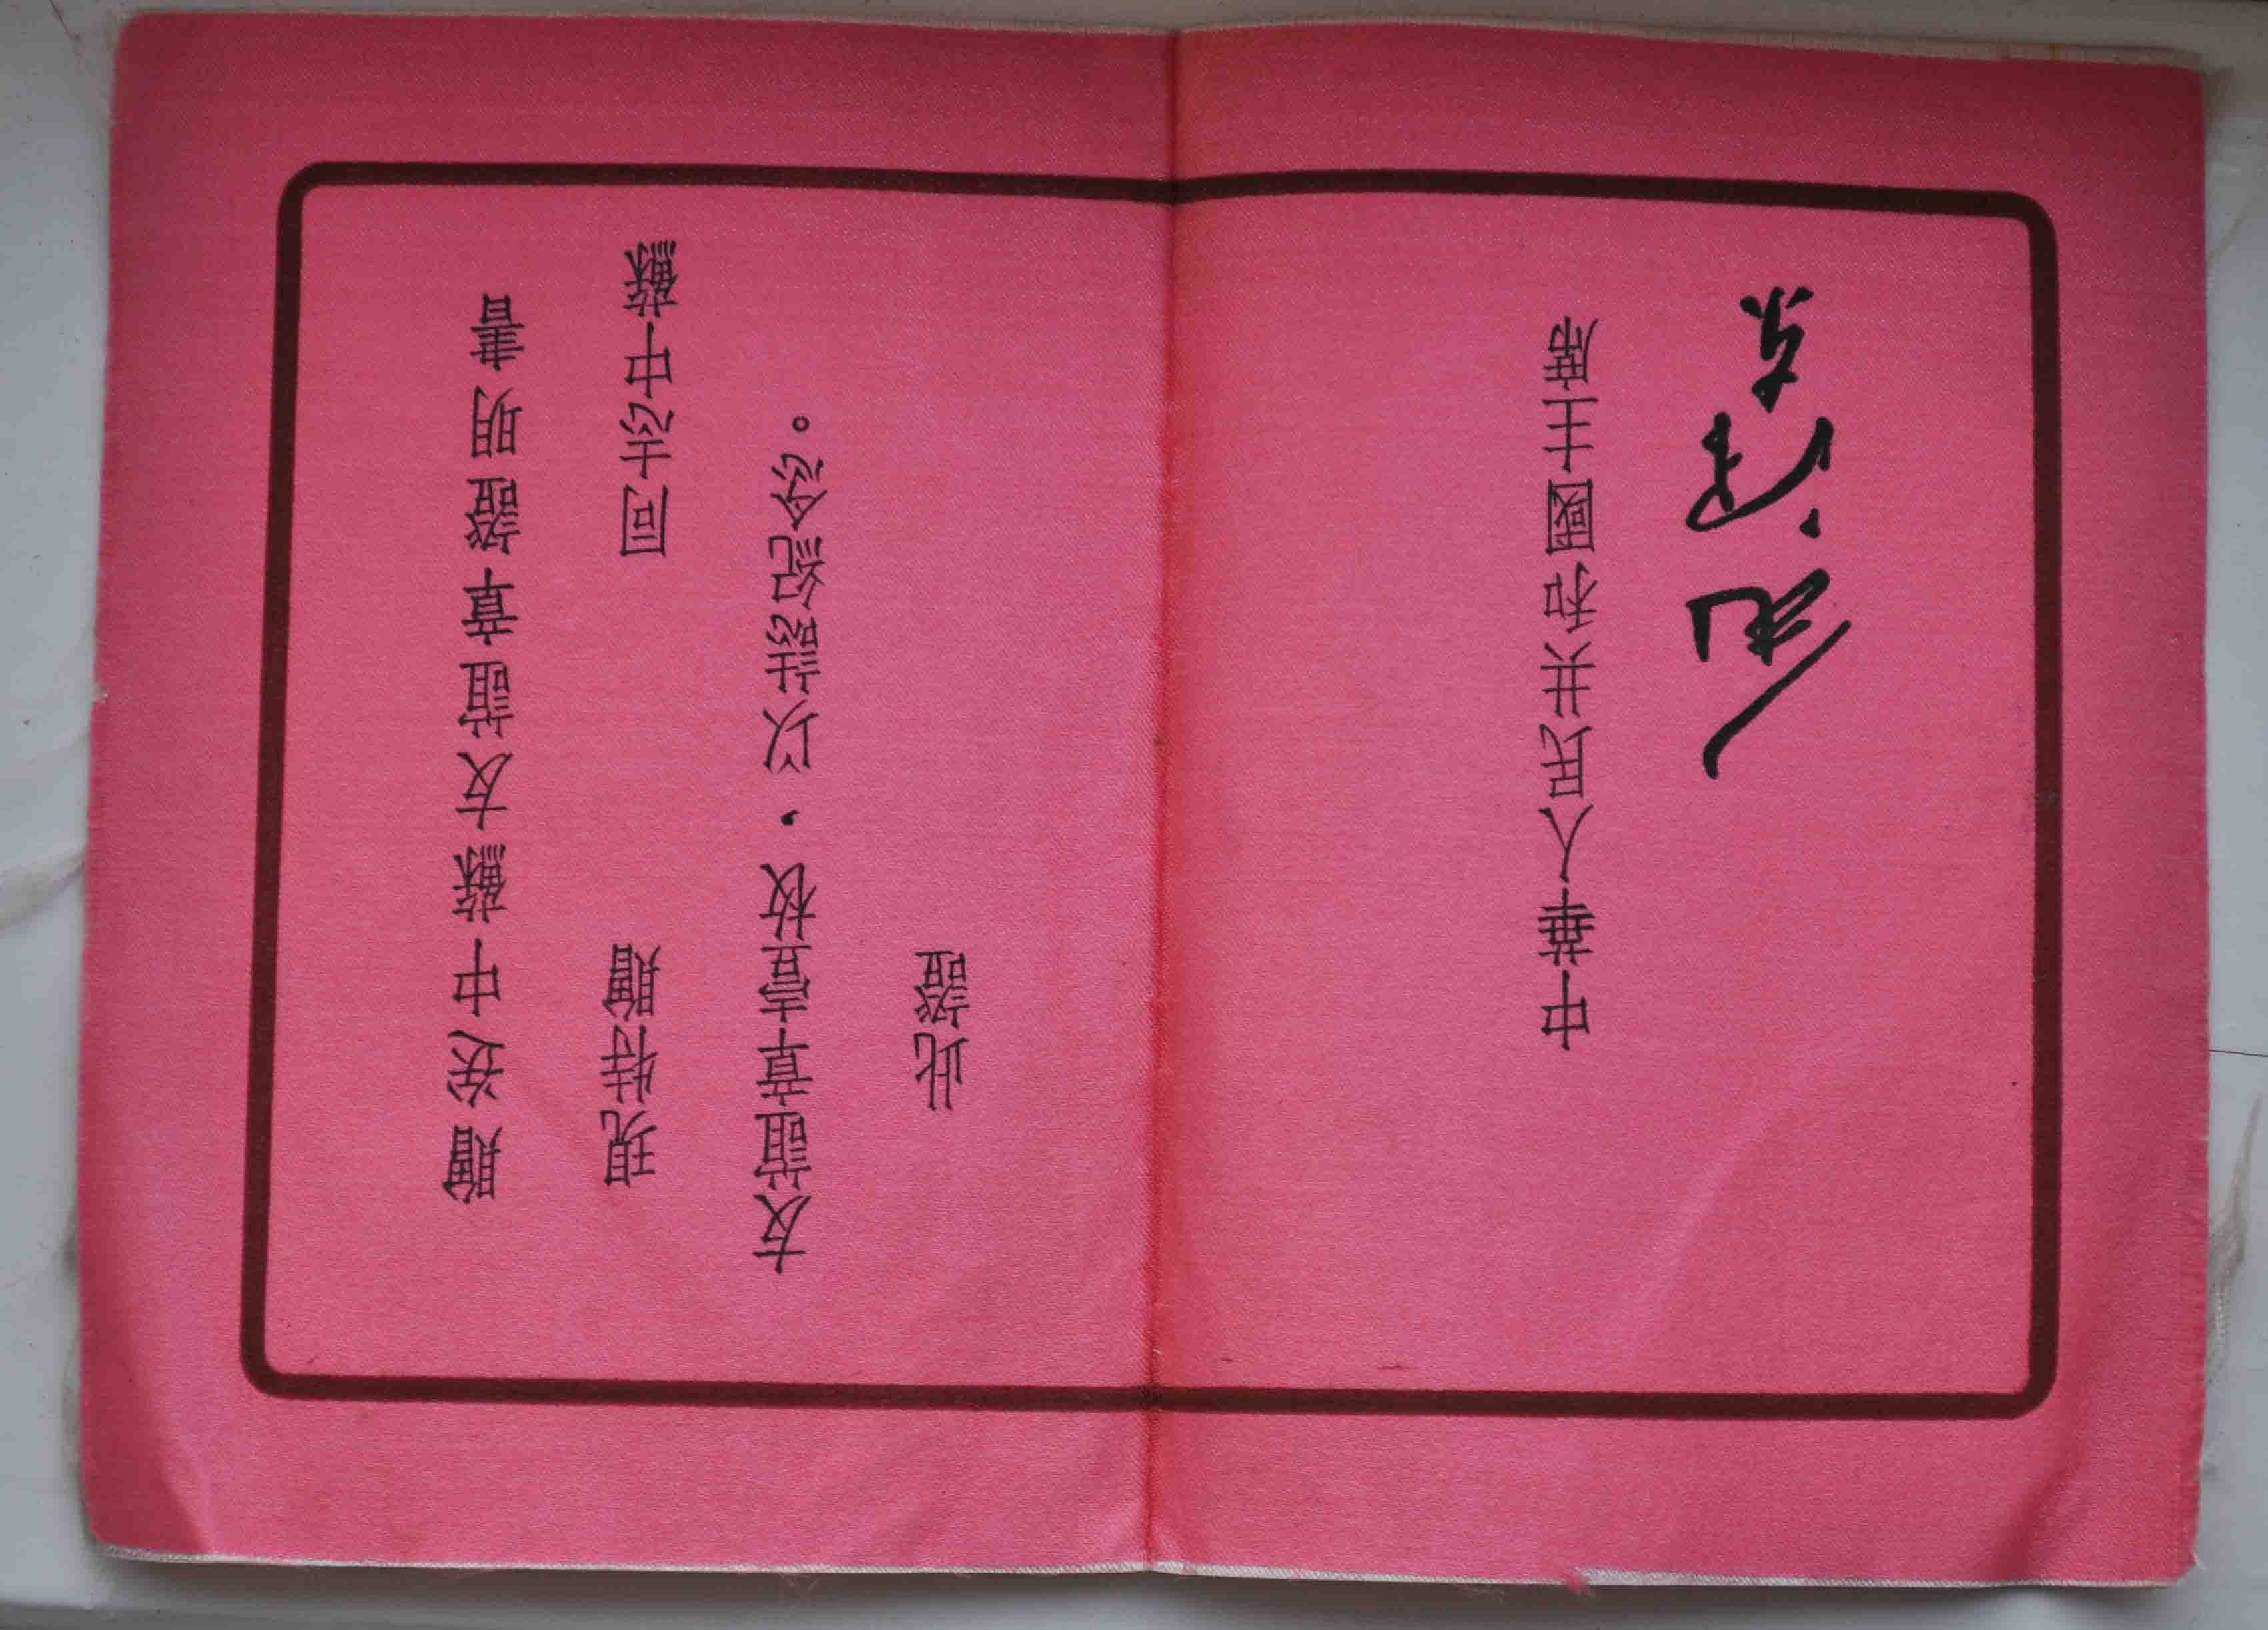 贈送中蘇友誼章證明書
現特贈 同志中蘇
友誼章壹枚，以誌紀念。
此證
中華人民共和國主席
毛泽东